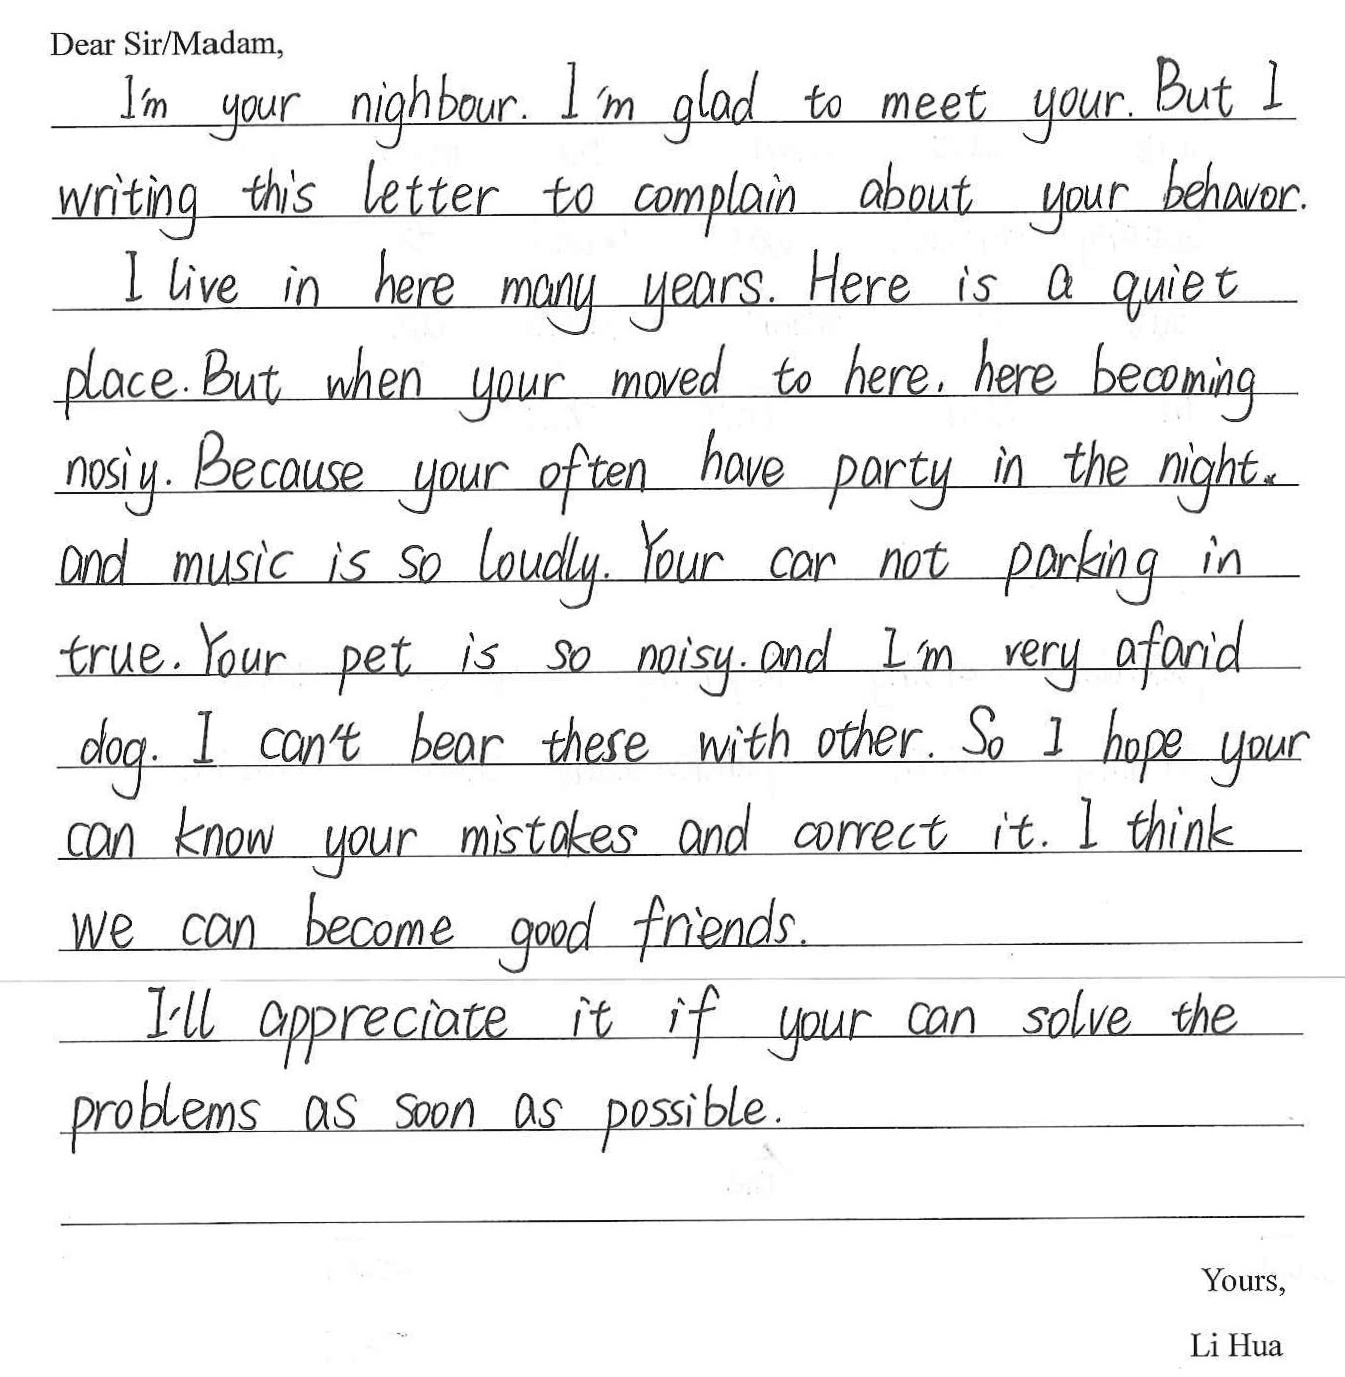 Dear Sir/Madam,
I'm your nighbour. I'm glad to meet your. But I
writing this letter to complain about your behavor.
I live in here many years. Here is a quiet
place. But when your moved to here, here becoming
nosiy. Because your often have party in the night.
and music is so loudly. Your car not parking in
true. Your pet is so noisy. and I'm very afarid
dog. I can't bear these with other. So I hope your
can know your mistakes and correct it. I think
we can become good friends.
I'll appreciate it if your can solve the
problems as soon as possible.
Yours,
Li Hua